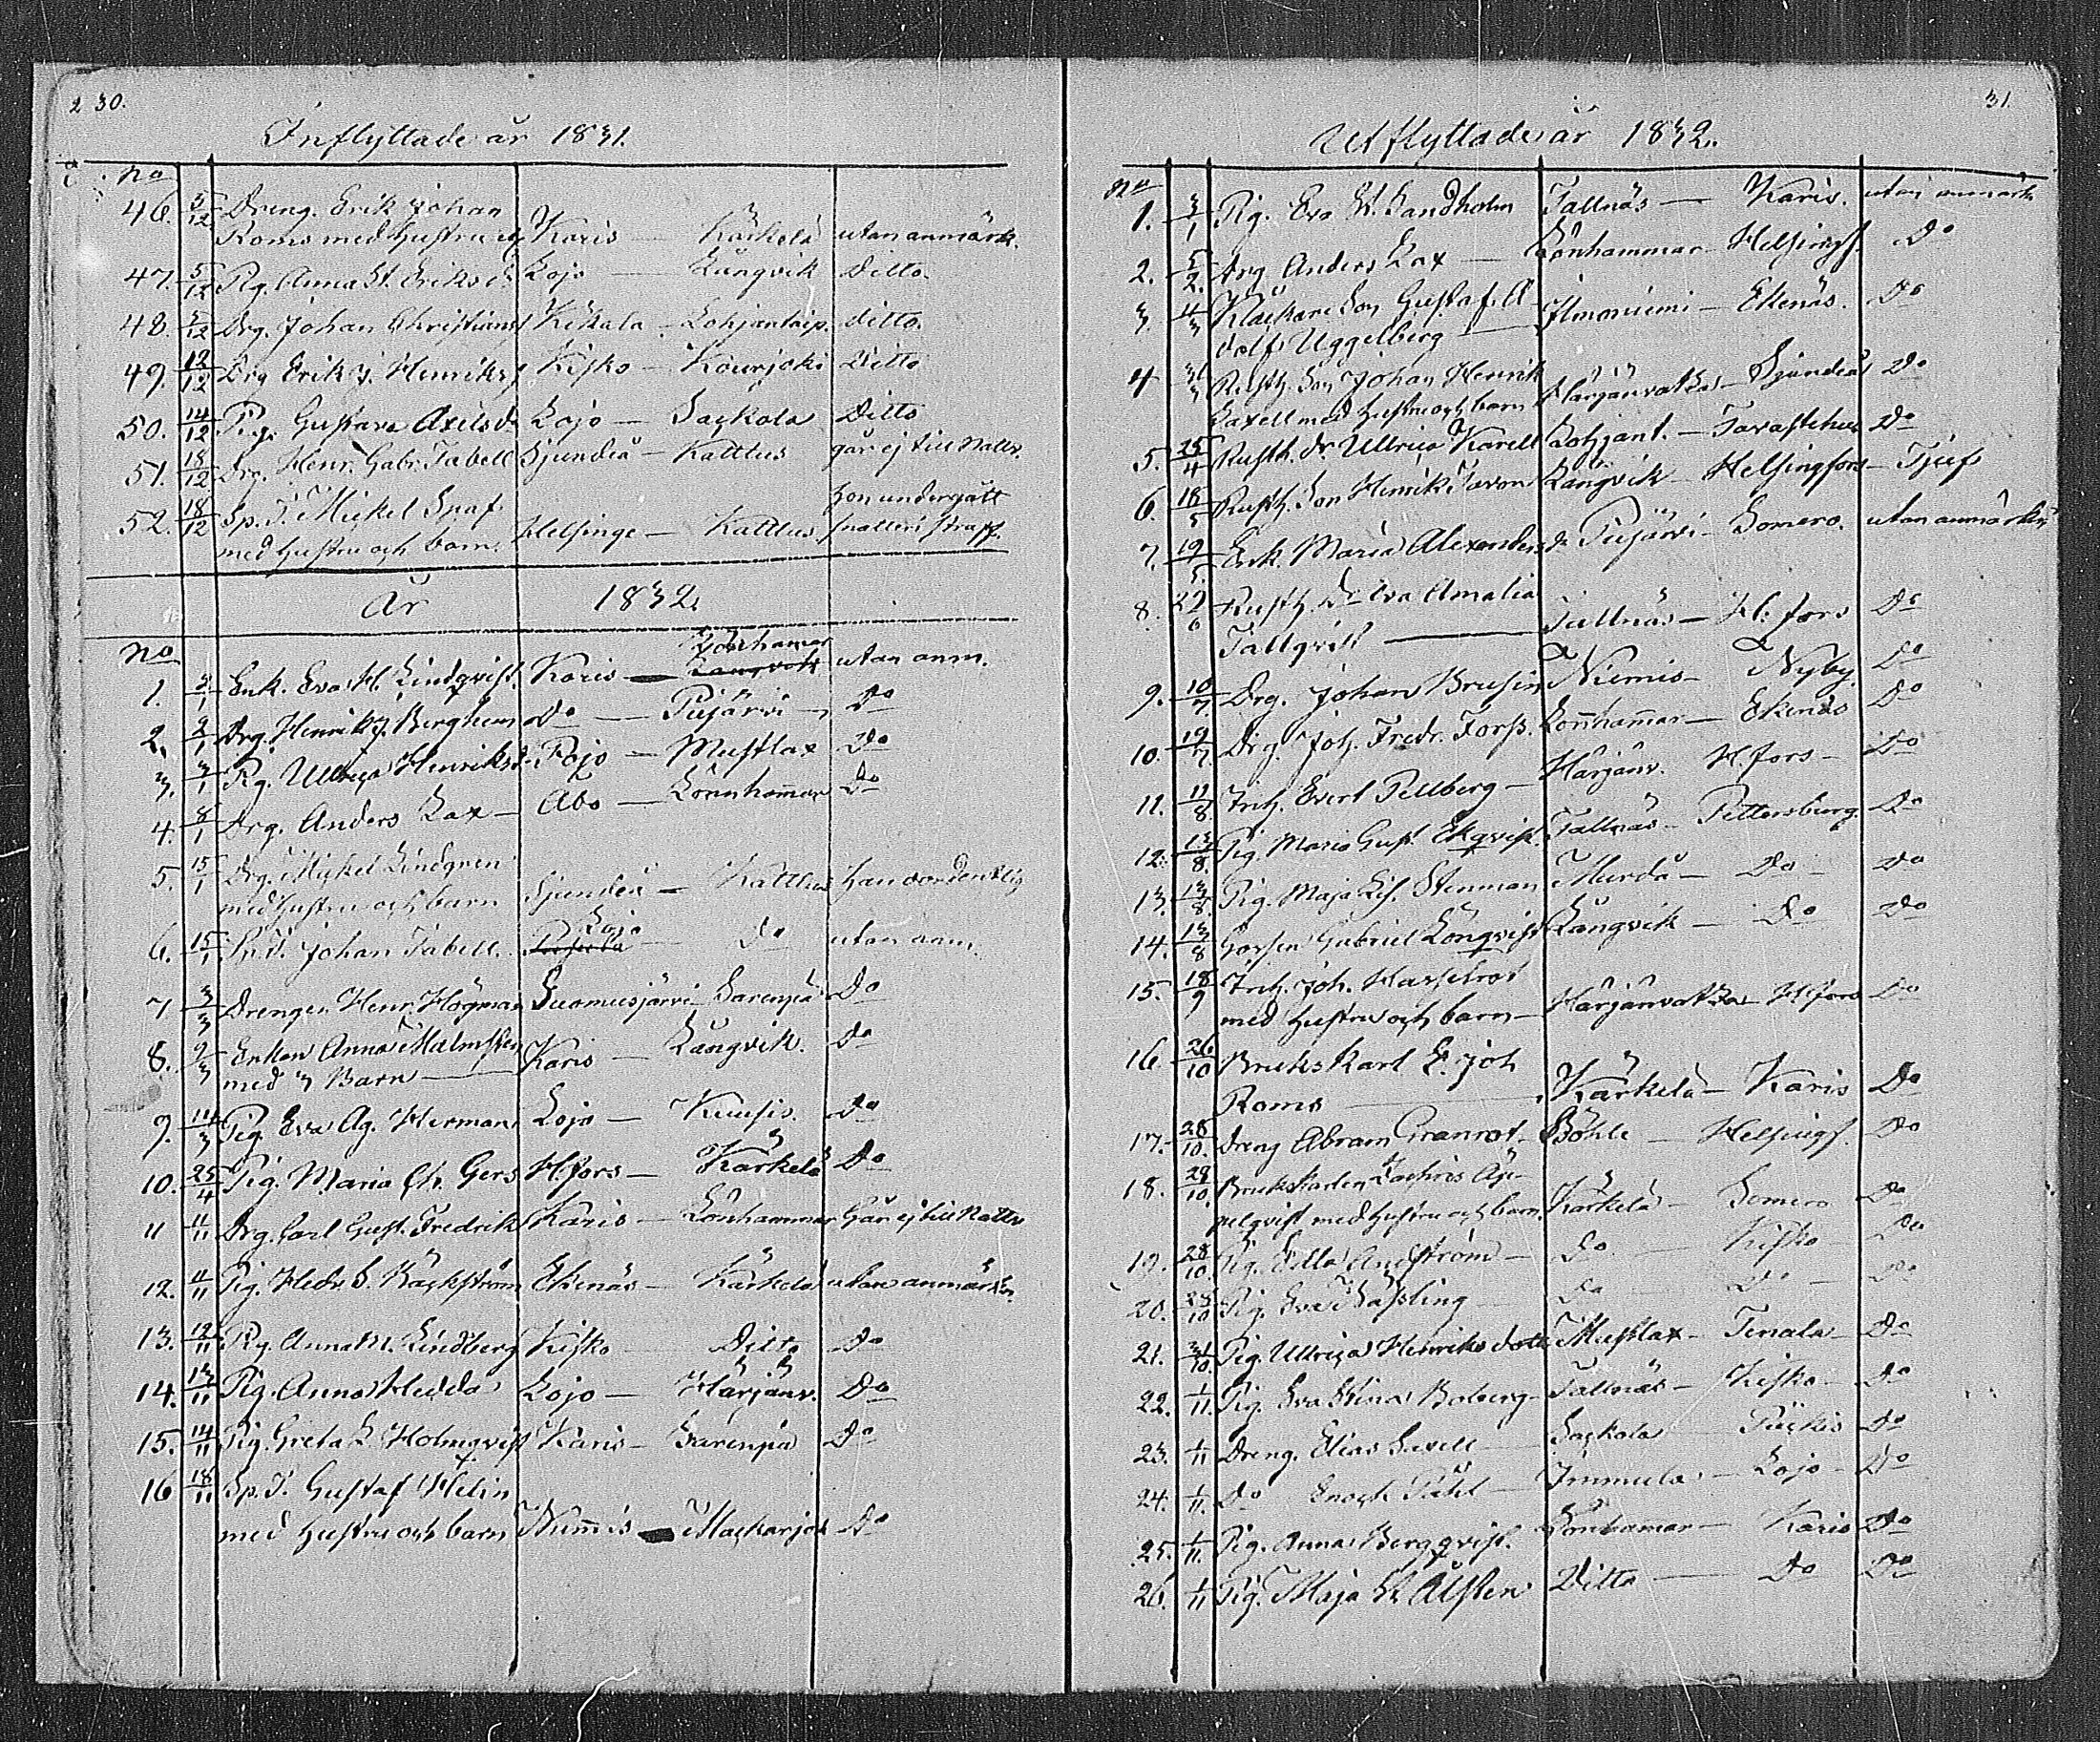 2 30.
Inflyttade år 1831.
No
46. 5/12 Dreng. Erik Johan
Roms med hustru Karis — Kärkelä utan anmärk.
47. 5/12 Pig. Anna St. Eriksd. Lojo — Långvik Ditto
48. 5/12 Drg. Johan Christians Kikala — Lohjantaip. ditto.
49. 12/12 Drg Erik J. Henriks Kisko — Kourjoki Ditto
50. 14/12 Pig. Gustava Axelsdr Lojo — Sackola Ditto
51. 18/12 Drg. Henr. Gabr. Tabell Sjundeå — Kattlus går ej till Nattv.
52. 18/12 Sp. J. Mickel Graf
med hustru och barn. Helsinge — Kattlus hon undergått snatteri straff.
År 1832.
No
1. 3/1 Enk. Eva H. Lindqvist. Karis — Långvik Lönhamar utan anm.
2. 2/1 Drg. Henrik J. Berghem Do — Pujärvi Do
3. 3/1 Pig. Ullrica Henriksd. Pojo — Mustlax Do
4. 8/1 Drg. Anders Lax — Åbo — Lönnhammar Do
5. 15/1 Drg. Mickel Lindgren
med hustru och barn Sjundeå — Kattlus han vardenslig
6. 15/1 Sp. J. Johan Tabell. Lojo — Do utan anm.
7 3/3 Drengen Henr. Högman Suomusjärvi Sarenpä Do
8. 9/3 Enkan Anna Malmsten
med 3 Barn — Karis — Långvik. Do
9. 14/3 Pig. Eva Ag. Herman Lojo — Kuusis. Do
10. 25/4 Pig. Maria Ch. Gers H.fors — Kärkelä Do
11 11/11 Drg. Carl Gust. Fredriks Karis — Lönhammar Går ej till Nattv
12. 11/11 Pig. Hedv. S. Bäckström Ekenäs — Kärkelä utan anmärkn.
13. 12/11 Pig. Anna M. Lindberg Kisko — Ditto Do
14. 13/11 Pig. Anna Hedda Lojo — Härjänv. Do
15. 14/11 Pig. Greta L. Holmqvist Karis — Sarenpä Do
16 18/11 Sp. J. Gustaf Helin
med hustru och barn Nummis — Mackarjok Do
31.
Utflyttade år 1832.
No
1. 3/1 Pig. Eva St. Sandholm Tallnäs — Karis. utan anmärk
2. 5/2. Drg Anders Lax — Lönhammar — Helsingf. Do
3. 4/3 Klåckare Son Gustaf A
dolf Uggelberg — Ilmoniemi — Ekenäs. Do
4 31/3 Rusth. Son Johan Henrik
Saxell med hustru och barn Härjänvatsa — Sjundeå Do
5. 25/4 Rusth. dr Ullrica Karell Lohjant. — Tavastehus Do
6. 18/5 Rusth. Son Henrik Tavon Långvik — Helsingfors — Tjuf
7. 19/5. Enk. Maria Alexandersd. Pujärvi — Somero. utan anmärkn
8. 22/6 Rusth. Dr Eva Amalia
Tallqvist — Tallnäs — H:fors Do
9. 10/7. Drg. Johan Brusin Niemis — Nyby Do
10. 19/7. Drg. Joh. Fredr. Forss. Lönnhammar — Ekenäs Do
11. 11/8. Evert Pellberg — Härjänv. H.fors — Do
12. 13/8. Pig. Maria Gust. Ekqvist Tallnäs — Pettersburg. Do
13. 13/8. Pig. Maja Lis. Stenman Murda — Do — Do
14. 13/8 Gossen Gabriel Lönqvist Långvik — Do Do
15. 18/9 Joh. Hasselrot
med hustru och barn — Härjänvatsa H.fors Do
16. 26/10 Bruks Karl E. Joh
Roms — Kärkelä — Karis Do
17. 28/10. Dreng Abram Granrot — Böhle — Helsingf. Do
18. 29/10. Bruks Karlen Zachris Ap-
pelqvist med hustru och barn. Kärkelä — Somero Do
19. 28/10. Pig. Ulla Anström — Do Kisko — Do
20. 28/10 Pig. Eva Sassling — Do Do — Do
21. 31/10. Pig. Ullrica Henriksdotter Mustlax — Tenala — Do
22. 1/11. Pig. Eva Stina Boberg — Tallnäs — Kisko — Do
23. 1/11 Dreng. Elias Savell — Sackola Pückis Do
24. 1/11. Do Enoch Påhl — Immula — Lojo — Do
25. 1/11. Pig. Anna Bergqvist. Lönhamar — Karis Do
26. 1/11 Pig. Maja St. Alsten Ditto — Do Do